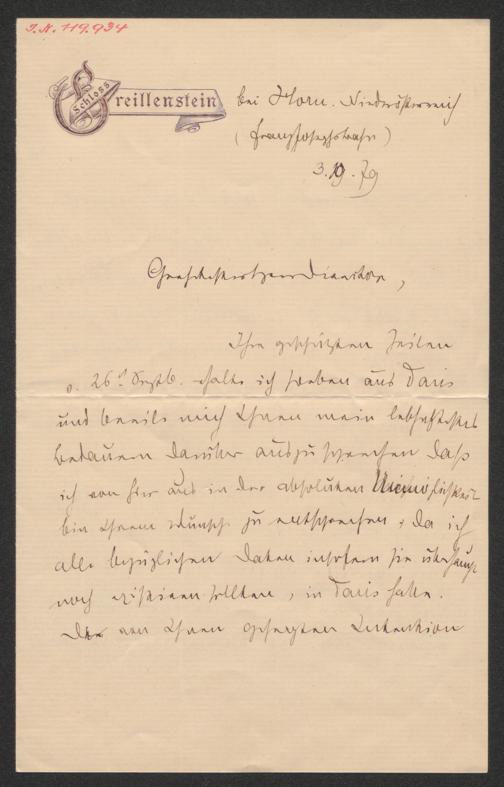 I.N. 119.934
Schloss Greillenstein bei Horn. Niederösterreich
(Franzjosephsbahn)
3.10.79
Hochverehrter Herr Direktor,
Ihre geschätzten Zeilen
v. 26t Septb. erhalte ich soeben aus Paris
und beeile mich Ihnen mein lebhaftestes
Bedauern darüber auszusprechen daß
ich von hier aus in der absoluten Unmöglichkeit
bin Ihrem Wunsch zu entsprechen, da ich
alle bezüglichen Daten insofern sie überhaupt
noch existieren sollten, in Paris habe.
Die von Ihnen gehegten Intention